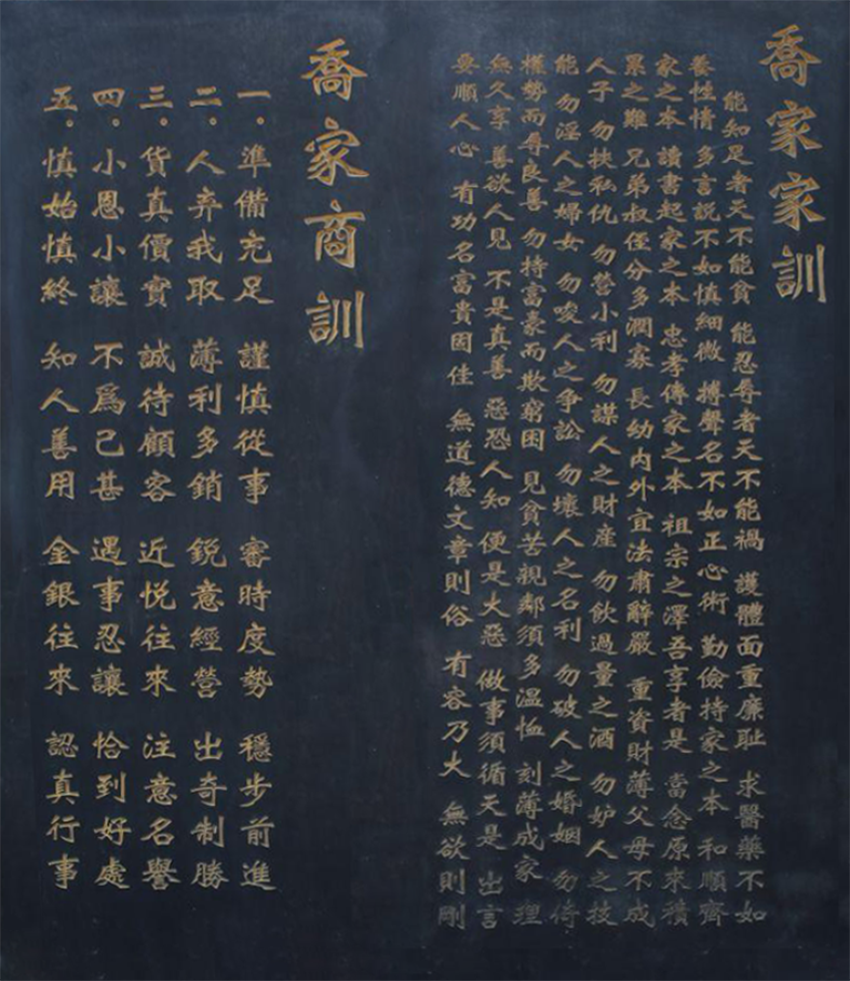 喬家家訓
能知足者天不能貧 能忍辱者天不能禍 護體面重廉耻 求醫藥不如
養性情 多言說不如慎細微 搏聲名不如正心術 勤儉持家之本 和順齊
家之本 讀書起家之本 忠孝傳家之本 祖宗之澤吾享者是 當念原來積
累之難 兄弟叔侄分多潤寡 長幼內外宜法肅辭嚴 重資財薄父母不成
人子 勿挾私仇 勿營小利 勿謀人之財産 勿飲過量之酒 勿妒人之技
能 勿淫人之婦女 勿唆人之爭訟 勿壞人之名利 勿破人之婚姻 勿倚
權勢而辱良善 勿持富豪而欺窮困 見貧苦親鄰須多溫恤 刻薄成家 理
無久享 善欲人見 不是真善 惡恐人知 便是大惡 做事須循天是 出言
要順人心 有功名富貴因佳 無道德文章則俗 有容乃大 無欲則剛
喬家商訓
一。準備充足 謹慎從事 審時度勢 穩步前進
二。人弃我取 薄利多銷 銳意經營 出奇制勝
三。貨真價實 誠待顧客 近悅往來 注意名譽
四。小恩小讓 不爲己甚 遇事忍讓 恰到好處
五。慎始慎終 知人善用 金銀往來 認真行事